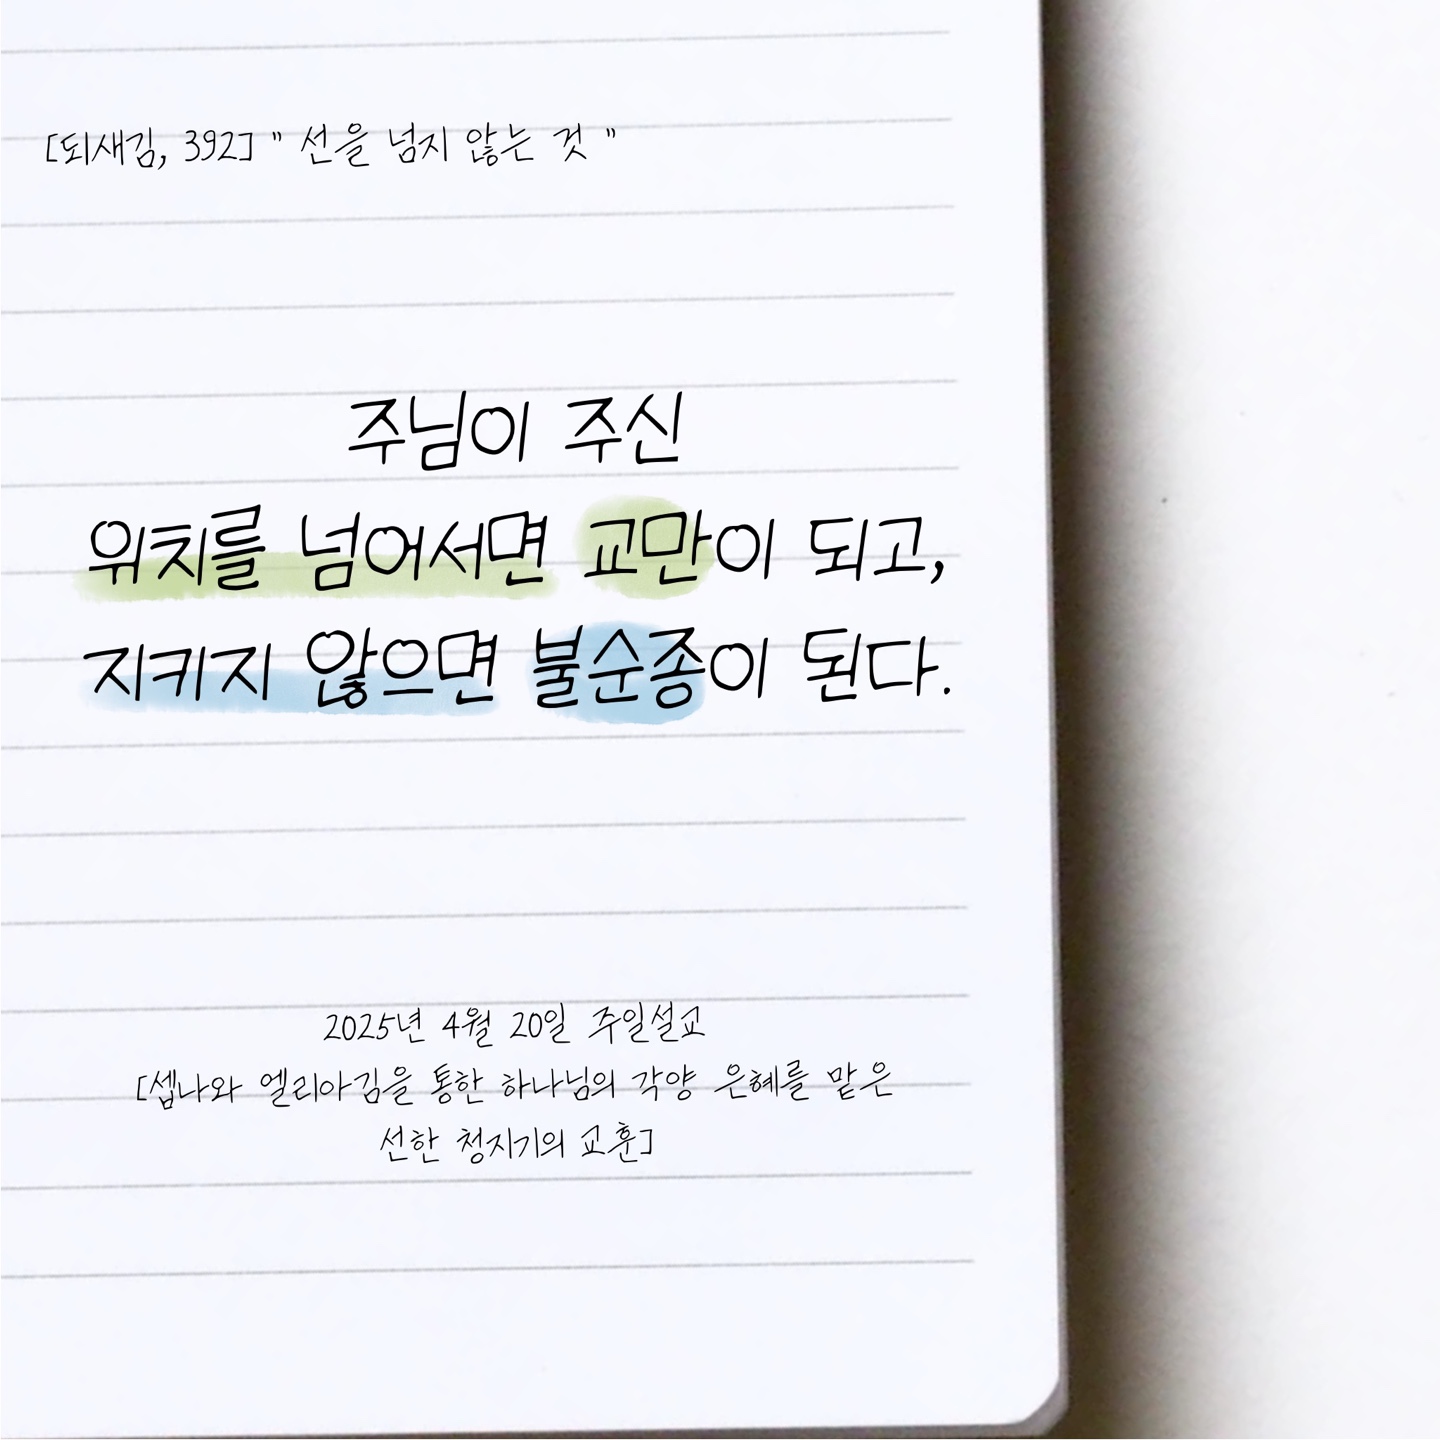 [되새김, 392] " 선을 넘지 않는 것 "
주님이 주신
위치를 넘어서면 교만이 되고,
지키지 않으면 불순종이 된다.
2025년 4월 20일 주일설교
[셉나와 엘리아김을 통한 하나님의 각양 은혜를 맡은
선한 청지기의 교훈]